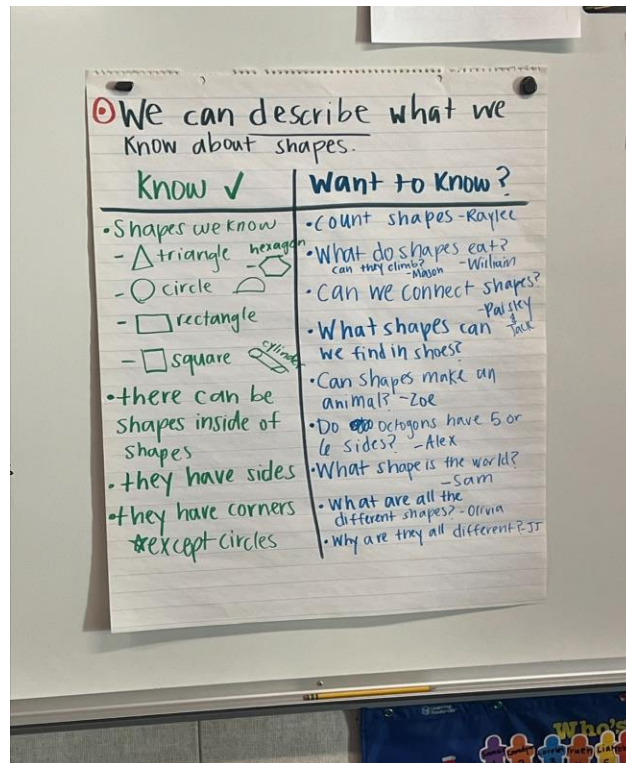 We can describe what we
know about shapes.
Know ✓
• Shapes we know
- triangle hexagon
- circle
- rectangle
- square cylinder
• there can be
shapes inside of
shapes
• they have sides
• they have corners
*except circles
Want to Know?
• Count shapes - Raylee
• What do shapes eat?
can they climb? - William
- Mason
• Can we connect shapes?
- Paisley
& Jack
• What shapes can
we find in shoes?
• Can shapes make an
animal? - Zoe
• Do octogons have 5 or
6 sides? - Alex
• What shape is the world?
- Sam
• What are all the
different shapes? - Olivia
• Why are they all different? - JJ
Who's